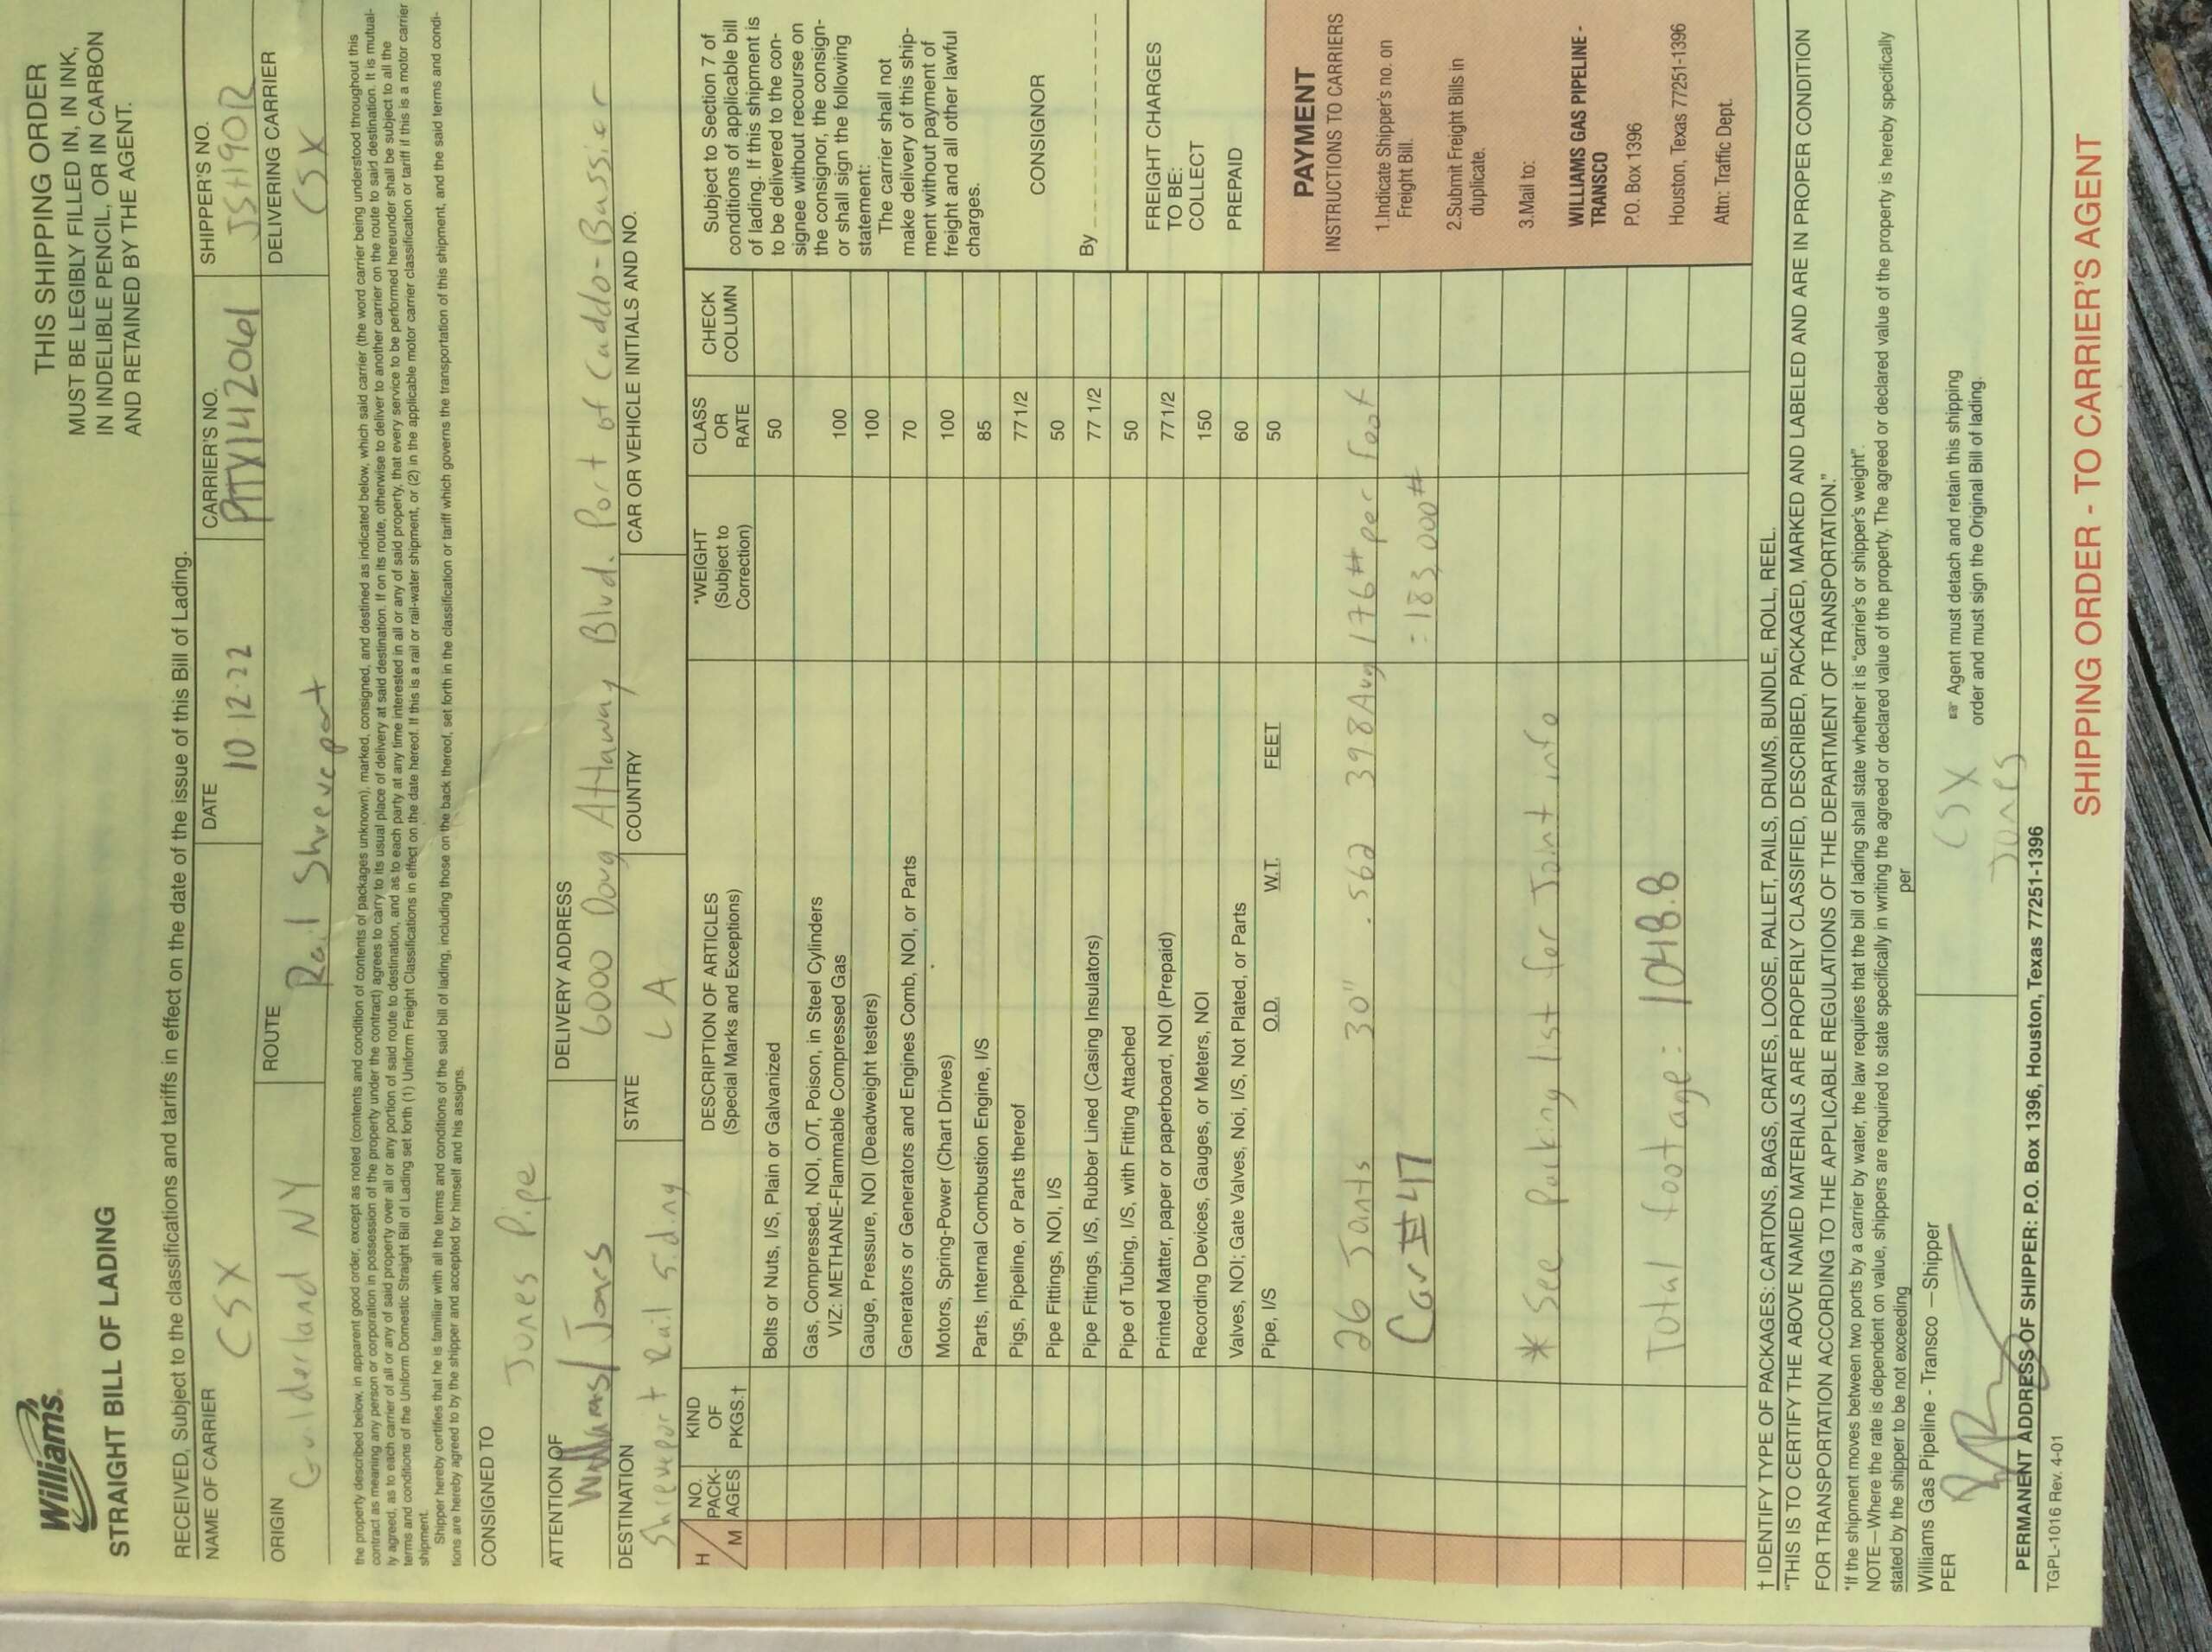 Williams.
STRAIGHT BILL OF LADING
THIS SHIPPING ORDER
MUST BE LEGIBLY FILLED IN, IN INK,
IN INDELIBLE PENCIL, OR IN CARBON
AND RETAINED BY THE AGENT.
RECEIVED, Subject to the classifications and tariffs in effect on the date of the issue of this Bill of Lading.
NAME OF CARRIER CSX
DATE 10 12-22
CARRIER'S NO.
SHIPPER'S NO.
ORIGIN Guilderland NY
ROUTE Rail Shreveport
DELIVERING CARRIER CSX
the property described below, in apparent good order, except as noted (contents and condition of contents of packages unknown), marked, consigned, and destined as indicated below, which said carrier (the word carrier being understood throughout this
contract as meaning any person or corporation in possession of the property under the contract) agrees to carry to its usual place of delivery at said destination. If on its route, otherwise to deliver to another carrier on the route to said destination. It is mutual-
ly agreed, as to each carrier of all or any of said property over all or any portion of said route to destination, and as to each party at any time interested in all or any of said property, that every service to be performed hereunder shall be subject to all the
terms and conditions of the Uniform Domestic Straight Bill of Lading set forth (1) Uniform Freight Classifications in effect on the date hereof. If this is a rail or rail-water shipment, or (2) in the applicable motor carrier classification or tariff if this is a motor carrier
shipment.
Shipper hereby certifies that he is familiar with all the terms and conditions of the said bill of lading, including those on the back thereof, set forth in the classification or tariff which governs the transportation of this shipment, and the said terms and condi-
tions are hereby agreed to by the shipper and accepted for himself and his assigns.
CONSIGNED TO
Jones Pipe
ATTENTION OF Williams/Jones
DELIVERY ADDRESS 6000 Doug Attaway Blvd. Port of Caddo-Bossier
DESTINATION Shreveport Rail Siding
STATE LA
COUNTRY
CAR OR VEHICLE INITIALS AND NO.
H/M
NO. PACK-AGES
KIND OF PKGS.†
DESCRIPTION OF ARTICLES
(Special Marks and Exceptions)
*WEIGHT (Subject to Correction)
CLASS OR RATE
CHECK COLUMN
Bolts or Nuts, I/S, Plain or Galvanized 50
Gas, Compressed, NOI, O/T, Poison, in Steel Cylinders
VIZ: METHANE-Flammable Compressed Gas 100
Gauge, Pressure, NOI (Deadweight testers) 100
Generators or Generators and Engines Comb, NOI, or Parts 70
Motors, Spring-Power (Chart Drives) 100
Parts, Internal Combustion Engine, I/S 85
Pigs, Pipeline, or Parts thereof 77 1/2
Pipe Fittings, NOI, I/S 50
Pipe Fittings, I/S, Rubber Lined (Casing Insulators) 77 1/2
Pipe of Tubing, I/S, with Fitting Attached 50
Printed Matter, paper or paperboard, NOI (Prepaid) 77 1/2
Recording Devices, Gauges, or Meters, NOI 150
Valves, NOI; Gate Valves, Noi, I/S, Not Plated, or Parts 60
Pipe, I/S O.D. W.T. FEET 50
26 Joints 30" .562 398 Avg 176# per foot
Car #47 =183,000#
* See packing list for Joint info
Total footage: 1048.8
Subject to Section 7 of
conditions of applicable bill
of lading. If this shipment is
to be delivered to the con-
signee without recourse on
the consignor, the consign-
or shall sign the following
statement:
The carrier shall not
make delivery of this ship-
ment without payment of
freight and all other lawful
charges.
CONSIGNOR
By
FREIGHT CHARGES
TO BE:
COLLECT
PREPAID
PAYMENT
INSTRUCTIONS TO CARRIERS
1.Indicate Shipper's no. on
Freight Bill.
2.Submit Freight Bills in
duplicate.
3.Mail to:
WILLIAMS GAS PIPELINE -
TRANSCO
P.O. Box 1396
Houston, Texas 77251-1396
Attn: Traffic Dept.
† IDENTIFY TYPE OF PACKAGES: CARTONS, BAGS, CRATES, LOOSE, PALLET, PAILS, DRUMS, BUNDLE, ROLL, REEL.
"THIS IS TO CERTIFY THE ABOVE NAMED MATERIALS ARE PROPERLY CLASSIFIED, DESCRIBED, PACKAGED, MARKED AND LABELED AND ARE IN PROPER CONDITION
FOR TRANSPORTATION ACCORDING TO THE APPLICABLE REGULATIONS OF THE DEPARTMENT OF TRANSPORTATION."
*If the shipment moves between two ports by a carrier by water, the law requires that the bill of lading shall state whether it is "carrier's or shipper's weight".
NOTE—Where the rate is dependent on value, shippers are required to state specifically in writing the agreed or declared value of the property. The agreed or declared value of the property is hereby specifically
stated by the shipper to be not exceeding per
Williams Gas Pipeline - Transco —Shipper
PER
CSX
Jones
☞ Agent must detach and retain this shipping
order and must sign the Original Bill of lading.
PERMANENT ADDRESS OF SHIPPER: P.O. Box 1396, Houston, Texas 77251-1396
TGPL-1016 Rev. 4-01
SHIPPING ORDER - TO CARRIER'S AGENT